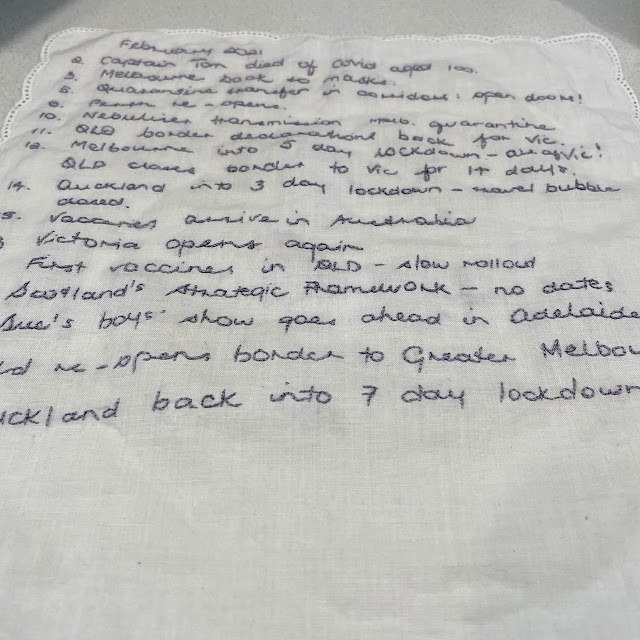 February 2021
2. Captain Tom died of Covid aged 100.
3. Melbourne back to masks.
5. Quarantine transfer in corridor! open doors!
8. Perth re-opens.
10. Nebuliser transmission melb. quarantine
11. QLD border declarations back for Vic.
12. Melbourne into 5 day lockdown - all of Vic!
QLD closes border to Vic for 14 days.
14. Auckland into 3 day lockdown - travel bubble
closed.
5. Vaccines arrive in Australia
Victoria opens again
First vaccines in QLD - slow rollout
Scotland's Strategic Framework - no dates
Sue's boys' show goes ahead in Adelaide
ld re-opens border to Greater Melbou
uckland back into 7 day lockdown